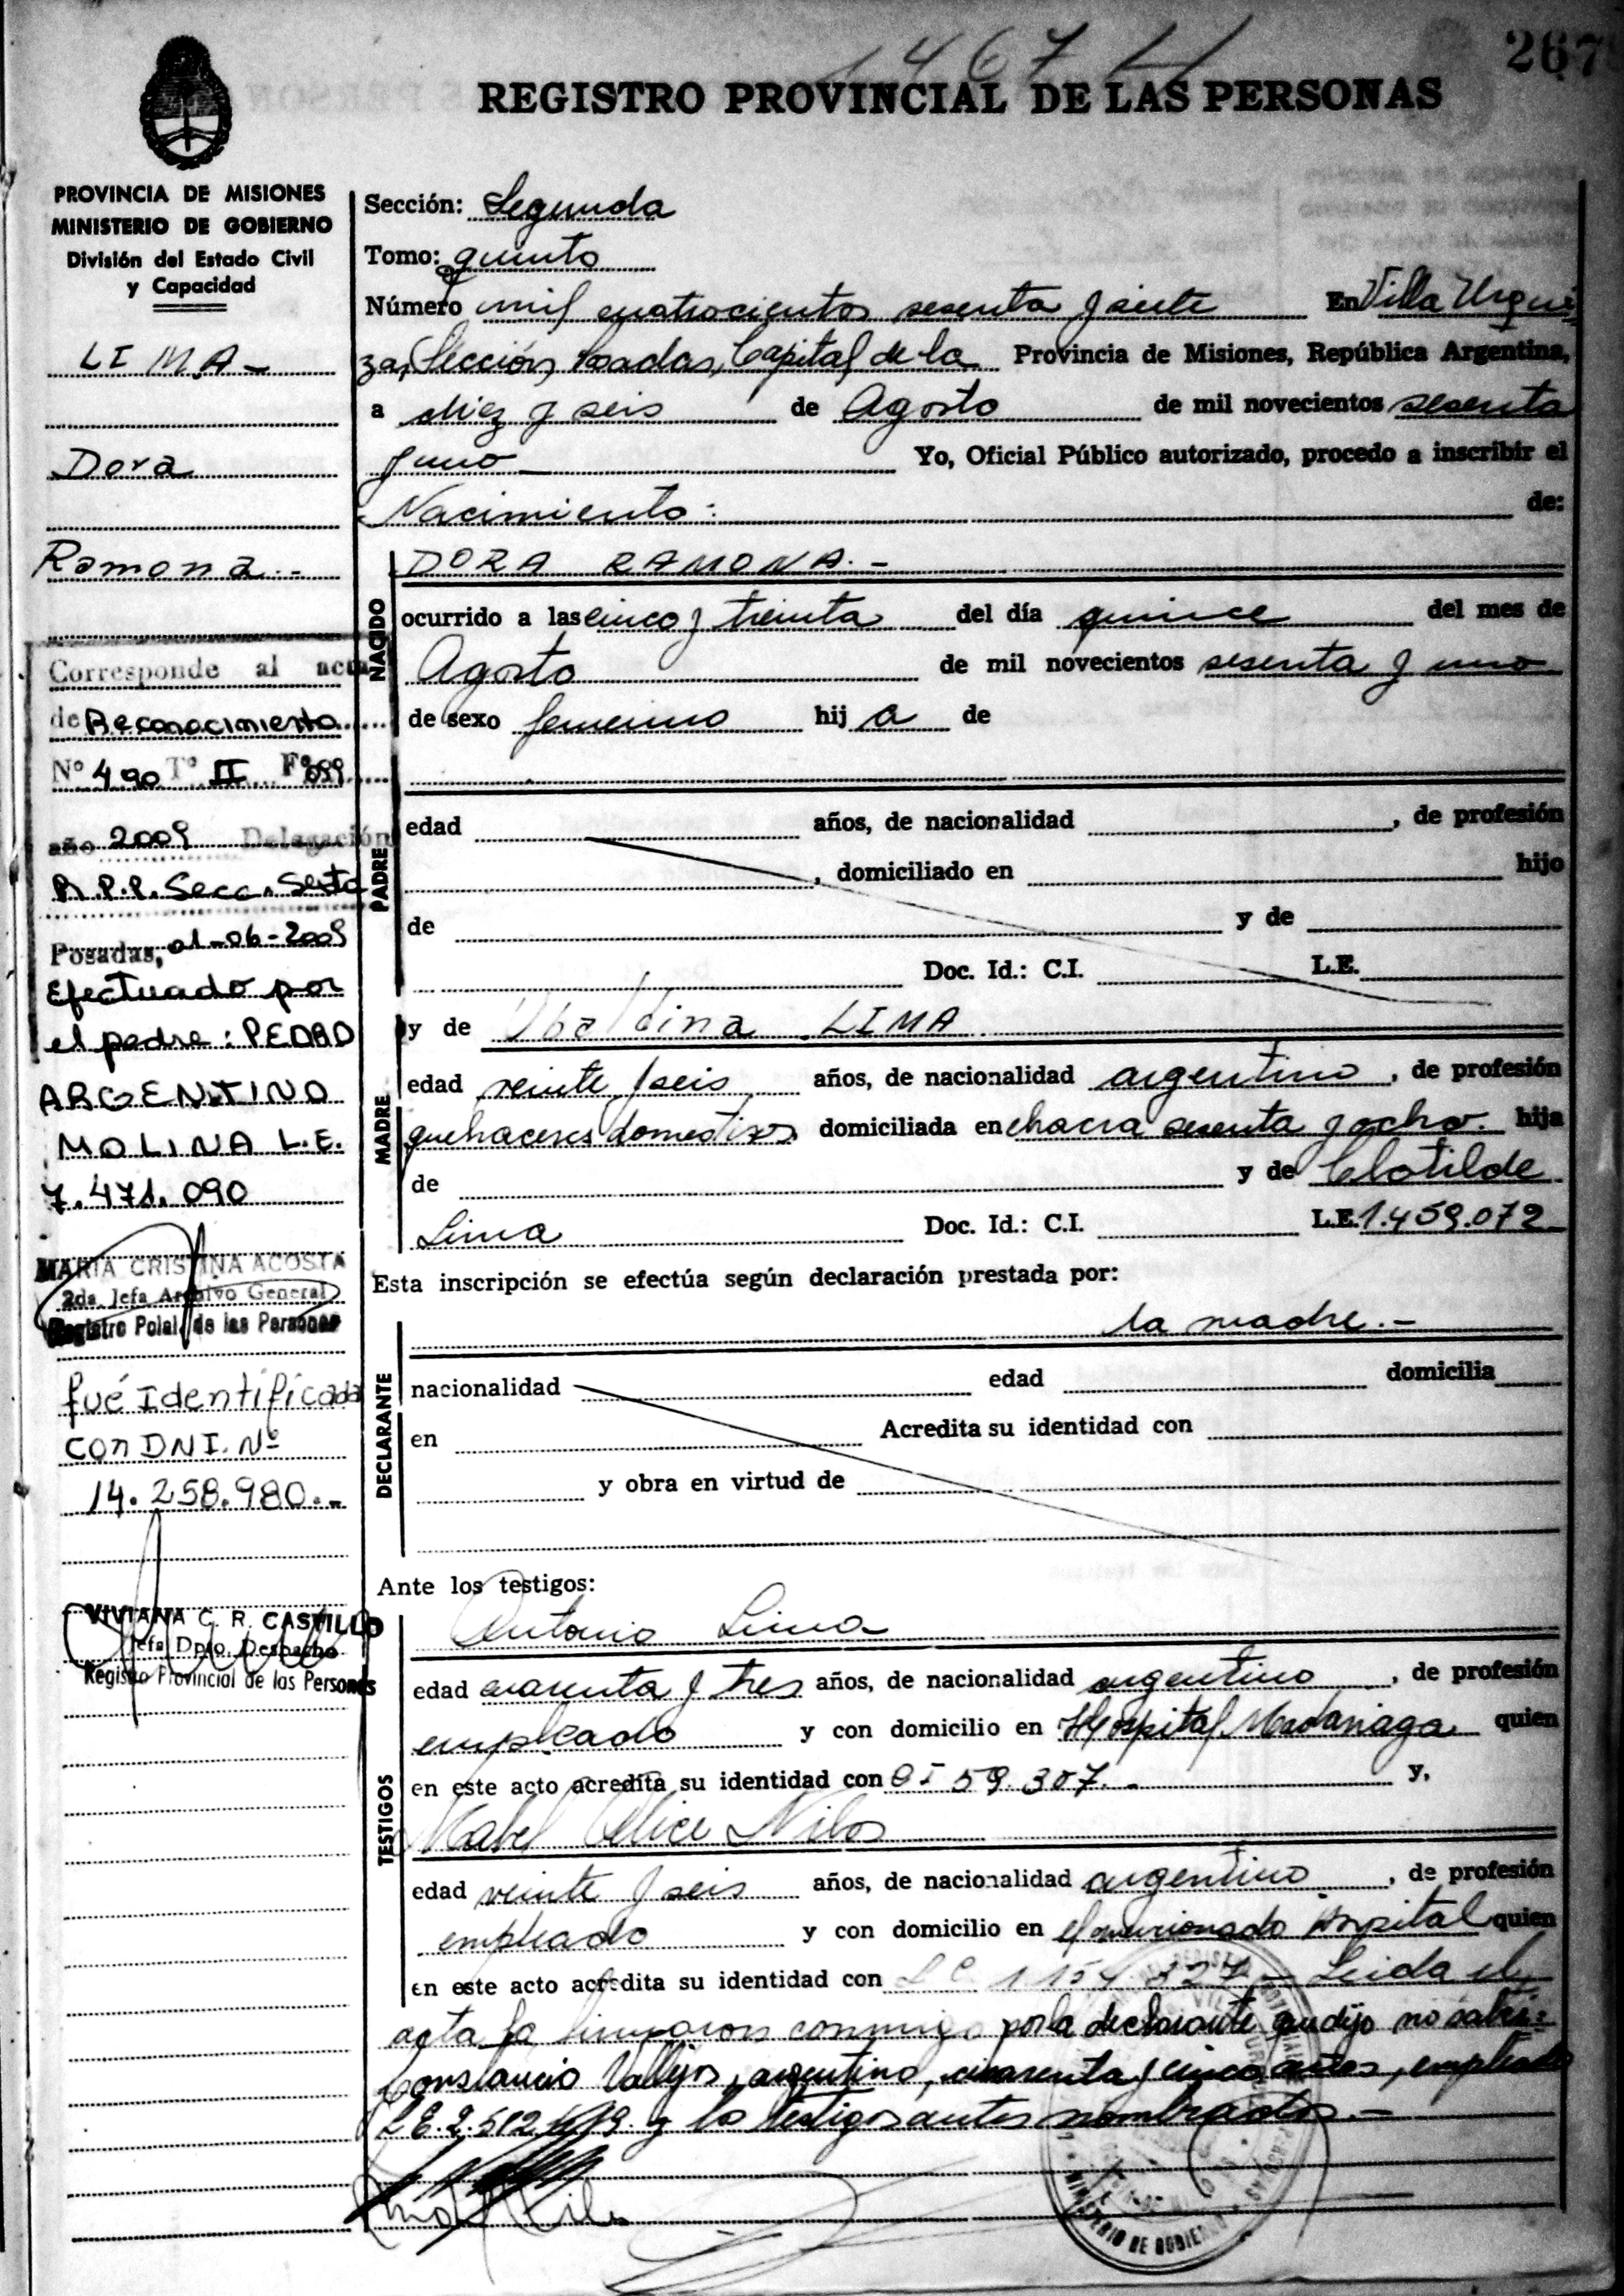 1467
267
REGISTRO PROVINCIAL DE LAS PERSONAS
PROVINCIA DE MISIONES
MINISTERIO DE GOBIERNO
División del Estado Civil
y Capacidad
LIMA-
Dora
Ramona.-
Corresponde al acta
de Reconocimiento
Nº 490 Tº II Fº 099
año 2009 Delegación
R.P.P. Secc. Sexta
Posadas, 01-06-2009
Efectuado por
el padre: PEDRO
ARGENTINO
MOLINA L.E.
7.471.090
MARIA CRISTINA ACOSTA
2da. Jefa Archivo General
Registro Pcial. de las Personas
fué Identificada
con DNI. Nº
14.258.980.-
VIVIANA C. R. CASTILLO
Jefa Dpto. Despacho
Registro Provincial de las Personas
Sección: Segunda
Tomo: quinto
Número mil cuatrocientos sesenta y siete En Villa Urqui-
za, Sección, Posadas, Capital de la Provincia de Misiones, República Argentina,
a diez y seis de Agosto de mil novecientos sesenta
y uno Yo, Oficial Público autorizado, procedo a inscribir el
Nacimiento: de:
NACIDO
DORA RAMONA.-
ocurrido a las cinco y treinta del día quince del mes de
Agosto de mil novecientos sesenta y uno
de sexo femenino hij a de
PADRE
edad años, de nacionalidad , de profesión
, domiciliado en hijo
de y de
Doc. Id.: C.I. L.E.
MADRE
y de Ubaldina LIMA
edad veinte y seis años, de nacionalidad argentino, de profesión
quehaceres domesticos domiciliada en chacra sesenta y ocho. hija
de y de Clotilde
Lima Doc. Id.: C.I. L.E. 1.459.072
Esta inscripción se efectúa según declaración prestada por:
DECLARANTE
la madre.-
nacionalidad edad domicilia
en Acredita su identidad con
y obra en virtud de
Ante los testigos:
TESTIGOS
Antonio Lima
edad cuarenta y tres años, de nacionalidad argentino, de profesión
empleado y con domicilio en Hospital Madariaga quien
en este acto acredita su identidad con 59.307.- y,
Mabel Alice
edad veinte y seis años, de nacionalidad argentino, de profesión
empleado y con domicilio en el mencionado hospital quien
en este acto acredita su identidad con Leida el
acta la firmaron conmigo por la declarante que dijo no saber:
Constancio Vallejos, argentino, cuarenta y cinco años, empleado
L.E. y los testigos antes nombrados.-
MINISTERIO DE GOBIERNO